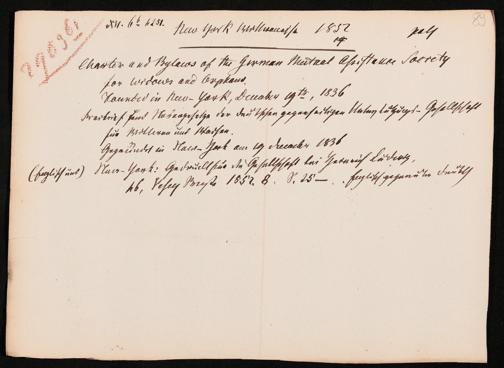 27896.
New York Wittwencasse 1852
Charter and Bylaws of the German Mutual Assistance Society
for widows and Orphans.
Founded in New-York, December 19th, 1836
Freibrief und Nebengesetze der deutschen gegenseitigen Unterstützungs-Gesellschaft
für Wittwen und Waisen.
Gegründet in New-York am 19 December 1836
(Englisch und) New-York. Gedruckt für die Gesellschaft bei Heinrich Ludwig,
Vesey 1852. 8. S. 25 — Englisch gegenüber deutsch